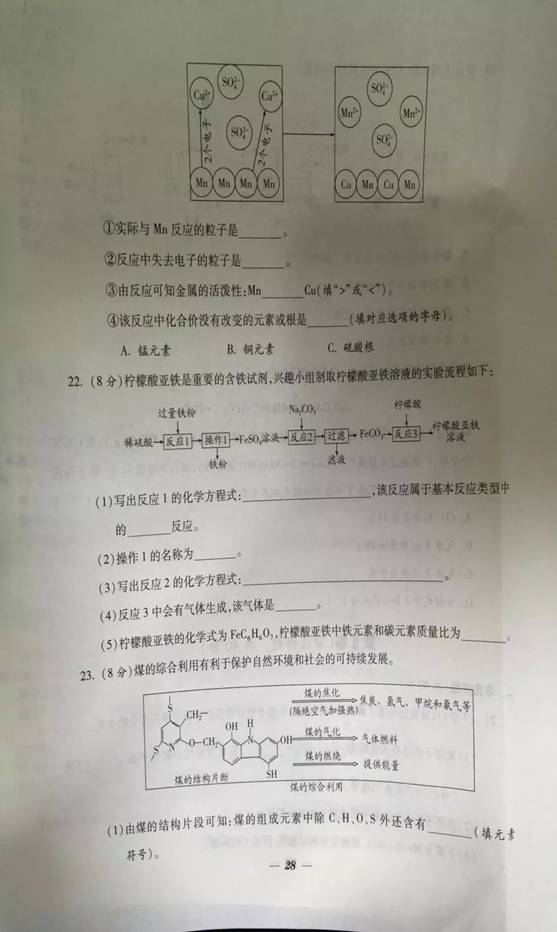 Cu²⁺ SO₄²⁻ Cu²⁺ SO₄²⁻
2个电子 SO₄²⁻ 2个电子 Mn²⁺ Mn²⁺
SO₄²⁻
Mn Mn Mn Mn Cu Mn Cu Mn
①实际与 Mn 反应的粒子是______。
②反应中失去电子的粒子是______。
③由反应可知金属的活泼性:Mn______Cu(填“>”或“<”)。
④该反应中化合价没有改变的元素或根是______(填对应选项的字母)。
A. 锰元素 B. 铜元素 C. 硫酸根
22. (8 分)柠檬酸亚铁是重要的含铁试剂,兴趣小组制取柠檬酸亚铁溶液的实验流程如下:
过量铁粉 Na₂CO₃ 柠檬酸
稀硫酸→反应1→操作1→FeSO₄溶液→反应2→过滤→FeCO₃→反应3→柠檬酸亚铁溶液
铁粉 滤液
(1)写出反应 1 的化学方程式:______,该反应属于基本反应类型中
的______反应。
(2)操作 1 的名称为______。
(3)写出反应 2 的化学方程式:______。
(4)反应 3 中会有气体生成,该气体是______。
(5)柠檬酸亚铁的化学式为 FeC₆H₆O₇,柠檬酸亚铁中铁元素和碳元素质量比为______。
23. (8 分)煤的综合利用有利于保护自然环境和社会的可持续发展。
煤的焦化 焦炭、氢气、甲烷和氨气等
(隔绝空气加强热)
煤的气化 气体燃料
煤的燃烧 提供能量
S CH₂— S N O—CH₂ OH H N OH SH
煤的结构片断 煤的综合利用
(1)由煤的结构片段可知:煤的组成元素中除 C、H、O、S 外还含有______(填元素
符号)。
— 28 —